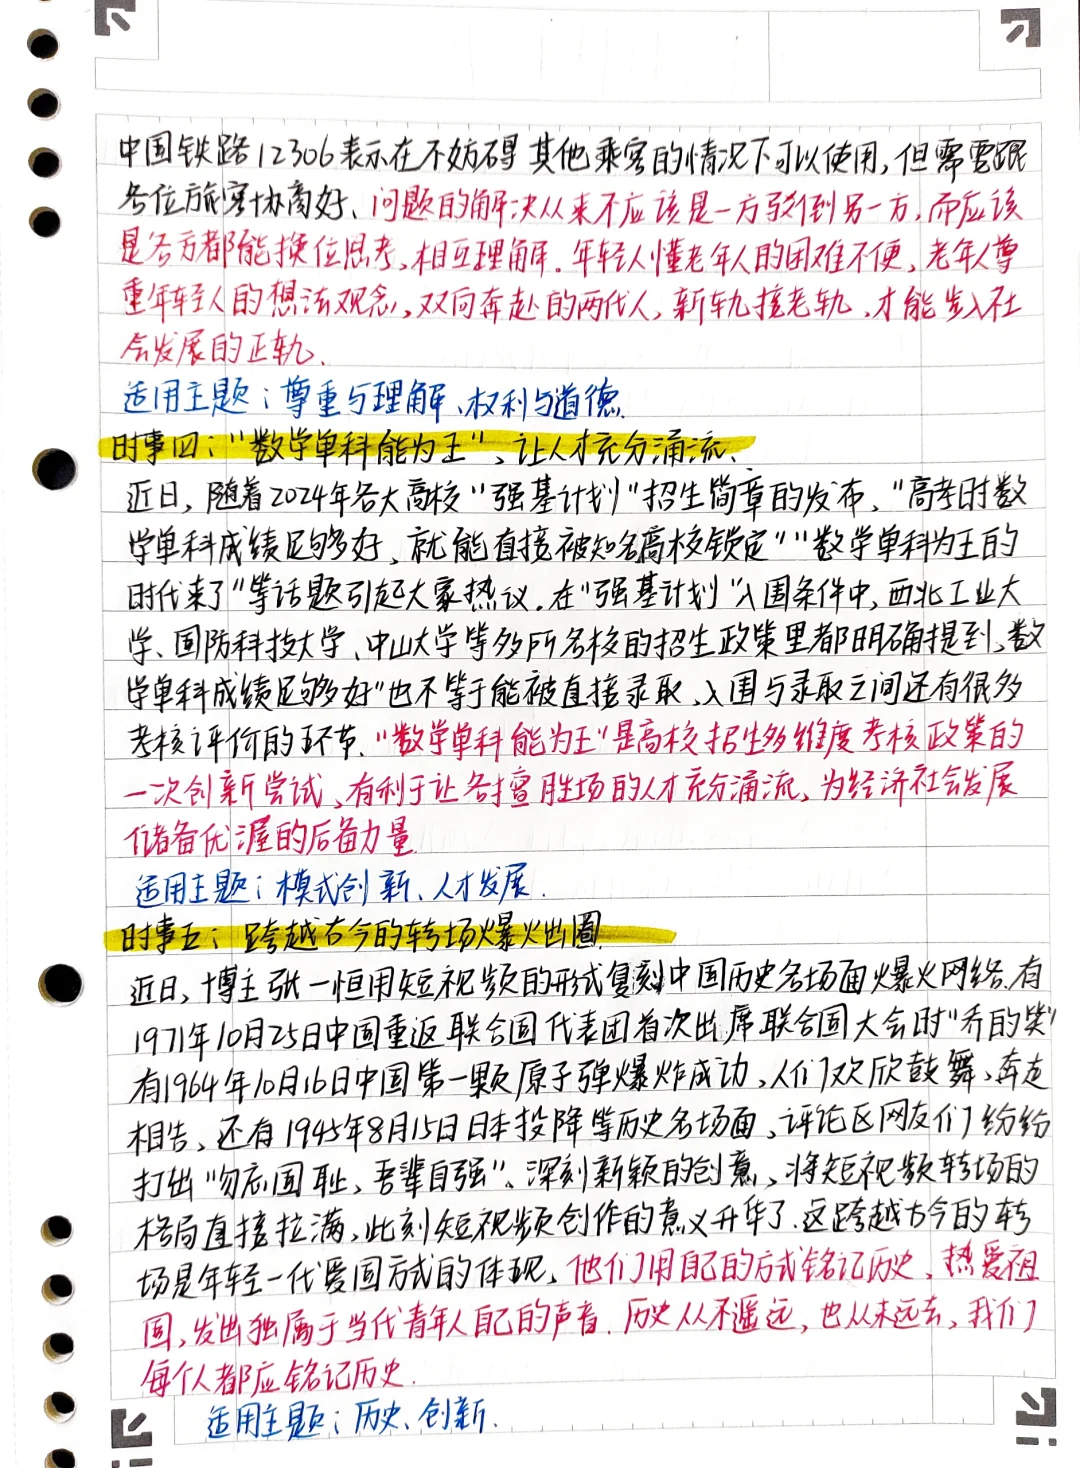 中国铁路12306表示在不妨碍其他乘客的情况下可以使用,但需要跟
各位旅客协商好、问题的解决从来不应该是一方驳倒另一方,而应该
是各方都能换位思考,相互理解.年轻人懂老年人的困难不便,老年人尊
重年轻人的想法观念,双向奔赴的两代人,新轨接老轨,才能步入社
会发展的正轨.
适用主题:尊重与理解、权利与道德.
时事四:"数学单科能为王",让人才充分涌流.
近日,随着2024年各大高校"强基计划"招生简章的发布,"高考时数
学单科成绩足够好,就能直接被知名高校锁定""数学单科为王的
时代来了"等话题引起大家热议.在"强基计划"入围条件中,西北工业大
学、国防科技大学、中山大学等多所名校的招生政策里都明确提到,数
学单科成绩足够多好"也不等于能被直接录取,入围与录取之间还有很多
考核评价的环节."数学单科能为王"是高校招生多维度考核政策的
一次创新尝试,有利于让各擅胜场的人才充分涌流,为经济社会发展
储备优渥的后备力量
适用主题:模式创新、人才发展.
时事五:跨越古今的转场爆火出圈
近日,博主张一恒用短视频的形式复刻中国历史名场面爆火网络.有
1971年10月25日中国重返联合国代表团首次出席联合国大会时"乔的笑"
有1964年10月16日中国第一颗原子弹爆炸成功,人们欢欣鼓舞,奔走
相告、还有1945年8月15日日本投降等历史名场面,评论区网友们纷纷
打出"勿忘国耻,吾辈自强".深刻新颖的创意,将短视频转场的
格局直接拉满,此刻短视频创作的意义升华了.这跨越古今的转
场是年轻一代爱国方式的体现,他们用自己的方式铭记历史,热爱祖
国,发出独属于当代青年人自己的声音.历史从不遥远,也从未远去,我们
每个人都应铭记历史.
适用主题:历史、创新.